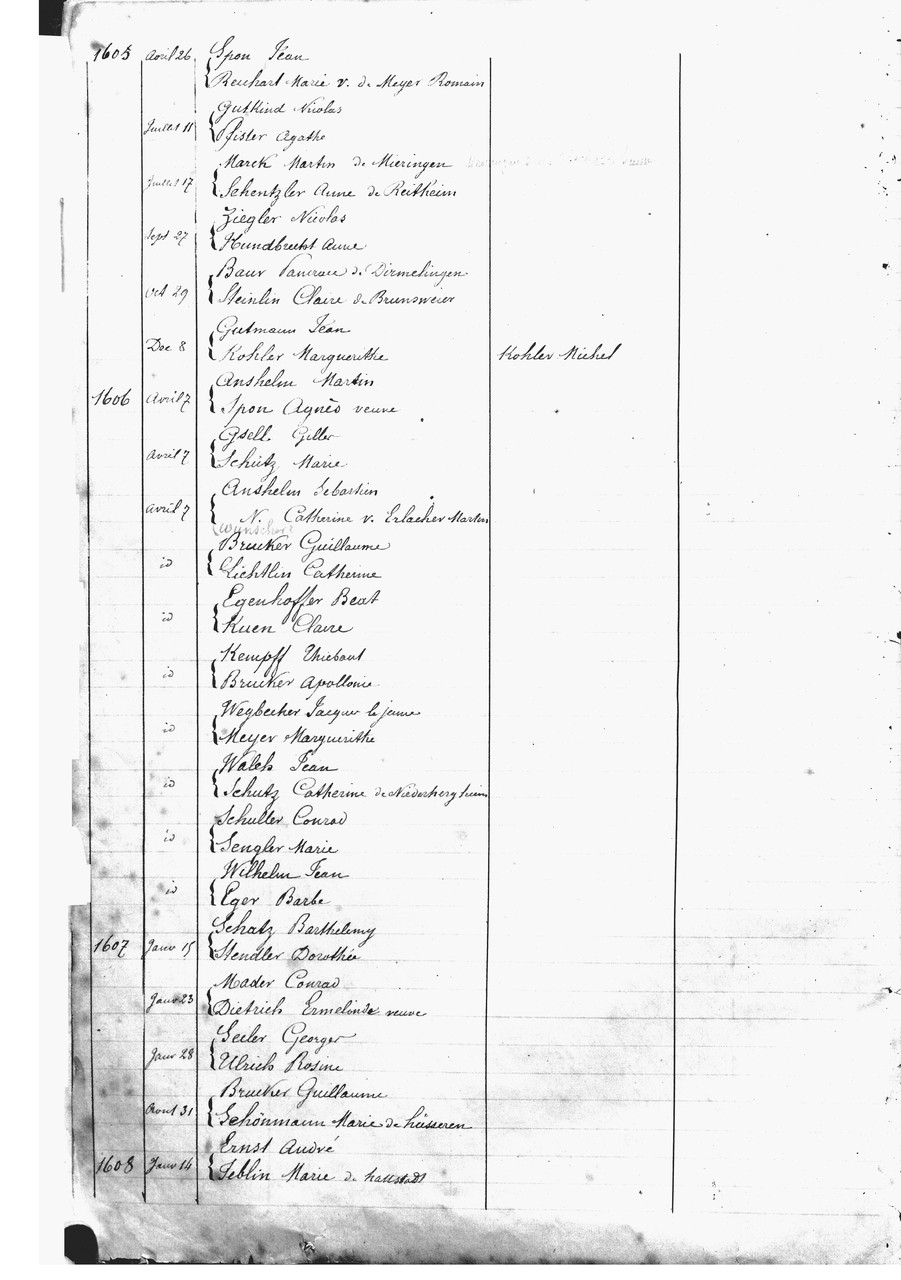 1605 Avril 26 Spon Jean
Reichart Marie v. de Meyer Romain
Gutkind Nicolas
Juillet 11 Pfister Agathe
Marck Martin de Mieringen
Juillet 17 Schentzler Anne de Reitheim
Ziegler Nicolas
Sept 27 Hundbrecht Anne
Baur Pancrace de Dirmelingen
Oct 29 Steinlin Claire de Brunsweier
Gutmann Jean
Dec 8 Kohler Marguerithe Kohler Michel
Anshelm Martin
1606 Avril 7 Spon Agnès veuve
Gsell Giller
Avril 7 Schütz Marie
Anshelm Sebastien
Avril 7 N. Catherine v. Erlacher Martin
(Wunscher)
Brucker Guillaume
id Lichtlin Catherine
Egenhoffer Beat
id Kuen Claire
Kempff Thiebaut
id Brucker Apollonie
Weybecher Jacques le jeune
id Meyer Marguerithe
Walch Jean
id Schutz Catherine de Niederhergheim
Schuller Conrad
id Sengler Marie
Wilhelm Jean
id Eger Barbe
Schatz Barthelemy
1607 Janv 15 Stendler Dorothée
Mader Conrad
Janv 23 Dietrich Ermelinde veuve
Seiler Georges
Janv 28 Ulrich Rosine
Brucker Guillaume
Aout 31 Schönmann Marie de hüsseren
Ernst André
1608 Janv 14 Seblin Marie de hattstadt